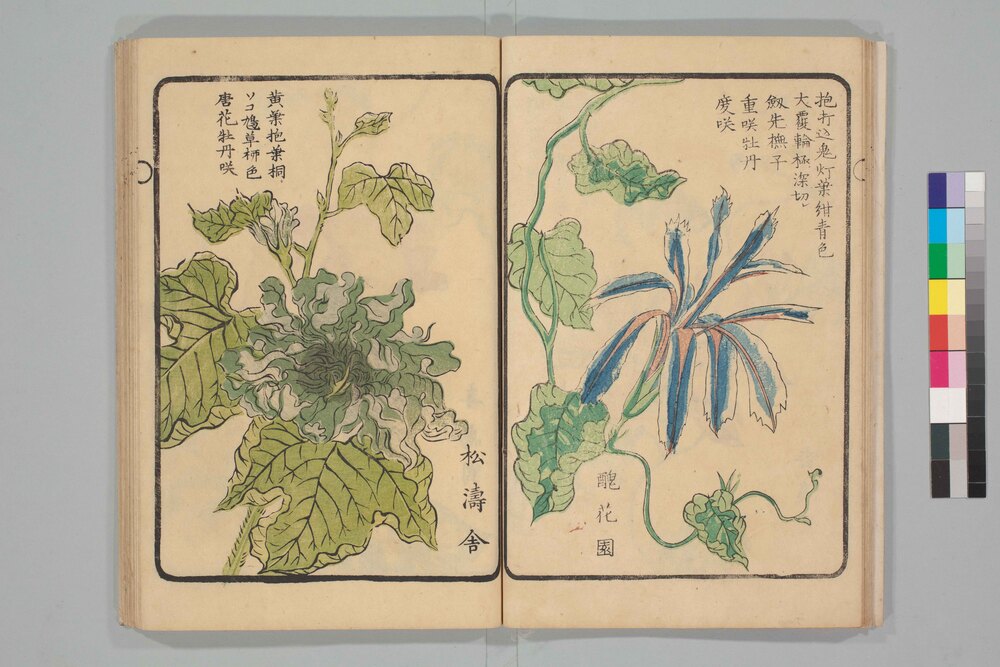 抱打込鬼灯葉紺青色
大覆輪極深切
剱先撫子
重咲牡丹
度咲
醜花園
黄葉抱葉桐
唐花牡丹咲
松濤舎